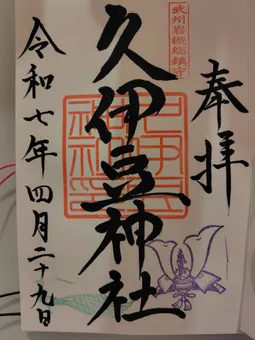 奉拝
武州岩槻総鎮守
久伊豆神社
令和七年四月二十九日